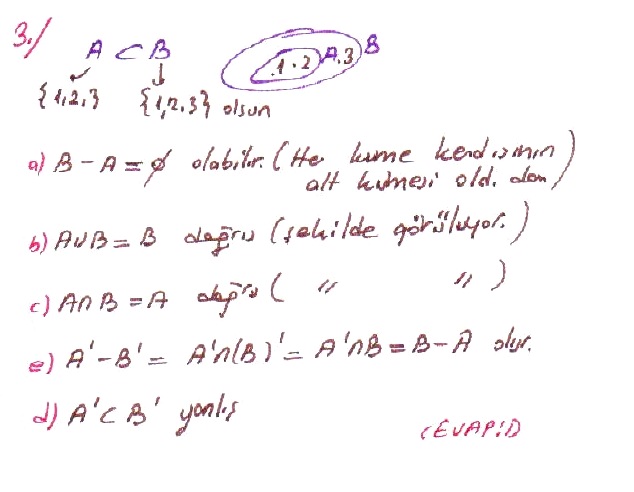 3./ A ⊂ B .1 .2 A .3 B
{1,2,} {1,2,3} olsun
a) B - A = ∅ olabilir. (He kume kendisinin
alt kümesi old. dan)
b) A∪B = B doğru (şekilde görülüyor.)
c) A∩B = A doğru ( " " )
e) A' - B' = A'∩(B')' = A'∩B = B - A olur.
d) A' ⊂ B' yanlış
CEVAP:D